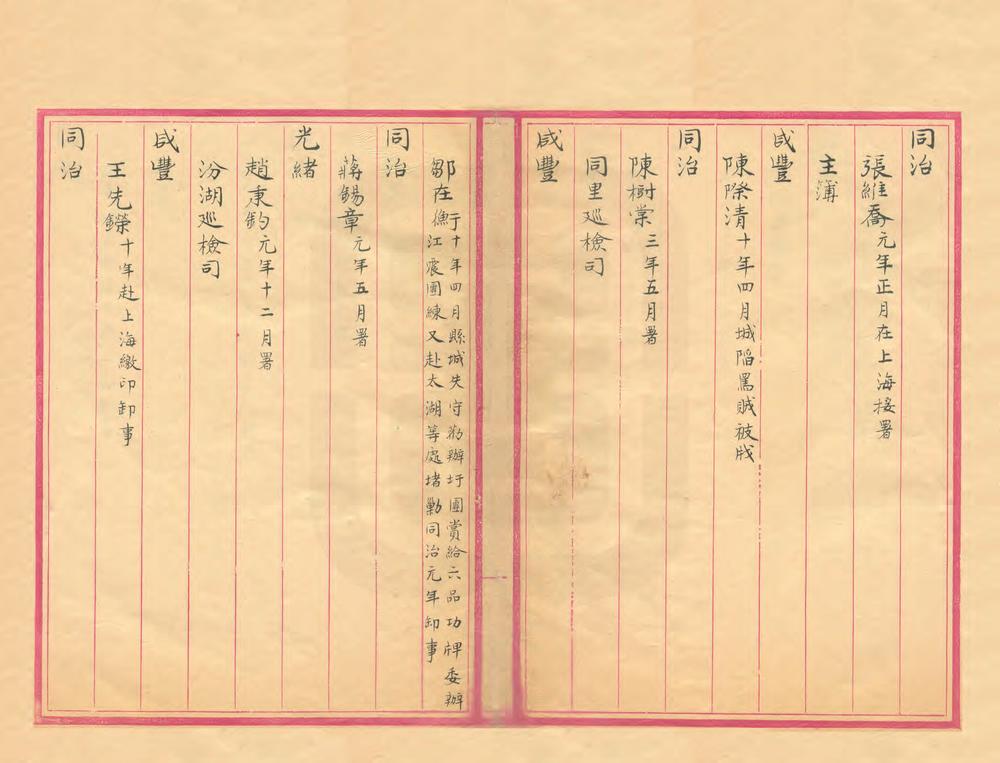 同治
張維喬元年正月在上海接署
主簿
咸豐
陳際清十年四月城陷罵賊被戕
同治
陳樹棠三年五月署
同里巡檢司
咸豐
鄒在
衡十年四月縣城失守勸辦圩團賞給六品功牌委辦
江震團練又赴太湖等處堵勦同治元年卸事
同治
蔣錫章元年五月署
光緒
趙秉鈞元年十二月署
汾湖巡檢司
咸豐
王先鑅十年赴上海繳印卸事
同治